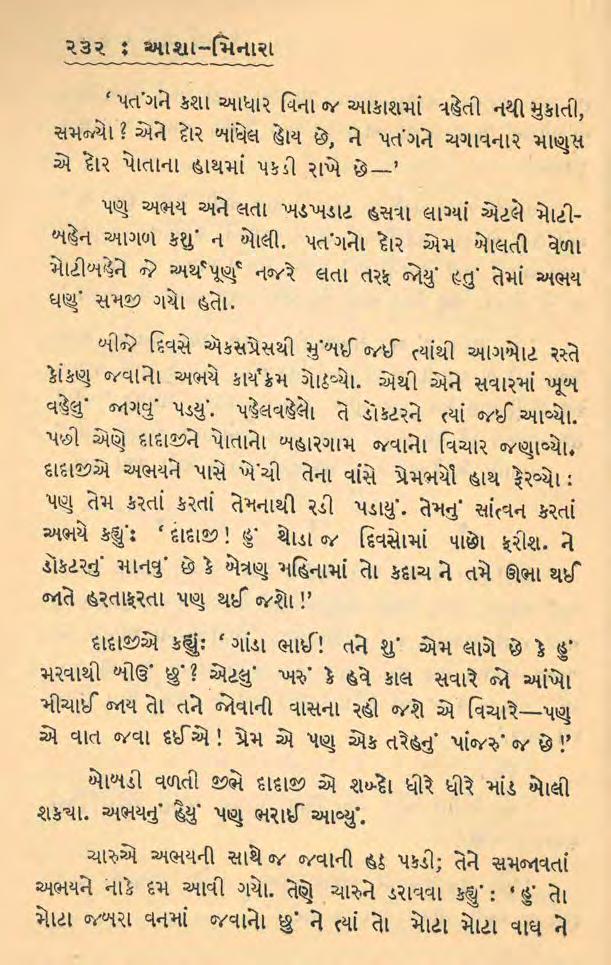 ૨૩૨ : આશા-મિનારા
‘ પતંગને કશા આધાર વિના જ આકાશમાં વહેતી નથી મુકાતી,
સમજ્યો ? એને દોર બાંધેલ હોય છે, ને પતંગને ચગાવનાર માણસ
એ દોર પોતાના હાથમાં પકડી રાખે છે—’
પણ અભય અને લતા ખડખડાટ હસવા લાગ્યાં એટલે મોટી-
બહેન આગળ કશું ન બોલી. પતંગનો દોર એમ બોલતી વેળા
મોટીબહેને જે અર્થપૂર્ણ નજરે લતા તરફ જોયું હતું તેમાં અભય
ઘણું સમજી ગયો હતો.
બીજે દિવસે એકસપ્રેસથી મુંબઈ જઈ ત્યાંથી આગબોટ રસ્તે
કોંકણ જવાનો અભયે કાર્યક્રમ ગોઠવ્યો. એથી એને સવારમાં ખૂબ
વહેલું જાગવું પડયું. પહેલવહેલો તે ડૉકટરને ત્યાં જઈ આવ્યો.
પછી એણે દાદાજીને પોતાનો બહારગામ જવાનો વિચાર જણાવ્યો.
દાદાજીએ અભયને પાસે ખેંચી તેના વાંસે પ્રેમભર્યો હાથ ફેરવ્યો :
પણ તેમ કરતાં કરતાં તેમનાથી રડી પડાયું. તેમનું સાંત્વન કરતાં
અભયે કહ્યું: ‘ દાદાજી ! હું થોડા જ દિવસોમાં પાછો ફરીશ. ને
ડૉકટરનું માનવું છે કે બેત્રણ મહિનામાં તો કદાચ ને તમે ઊભા થઈ
જાતે હરતાફરતા પણ થઈ જશો !’
દાદાજીએ કહ્યું: ‘ ગાંડા ભાઈ! તને શું એમ લાગે છે કે હું
મરવાથી બીઉં છું ? એટલું ખરું કે હવે કાલ સવારે જો આંખો
મીચાઈ જાય તો તને જોવાની વાસના રહી જશે એ વિચારે—પણ
એ વાત જવા દઈએ ! પ્રેમ એ પણ એક તરેહનું પાંજરું જ છે !’
બોબડી વળતી જીભે દાદાજી એ શબ્દો ધીરે ધીરે માંડ બોલી
શકયા. અભયનું હૈયું પણ ભરાઈ આવ્યું.
ચારુએ અભયની સાથે જ જવાની હઠ પકડી; તેને સમજાવતાં
અભયને નાકે દમ આવી ગયો. તેણે ચારુને ડરાવવા કહ્યું : ‘ હું તો
મોટા જબરા વનમાં જવાનો છું ને ત્યાં તો મોટા મોટા વાઘ ને